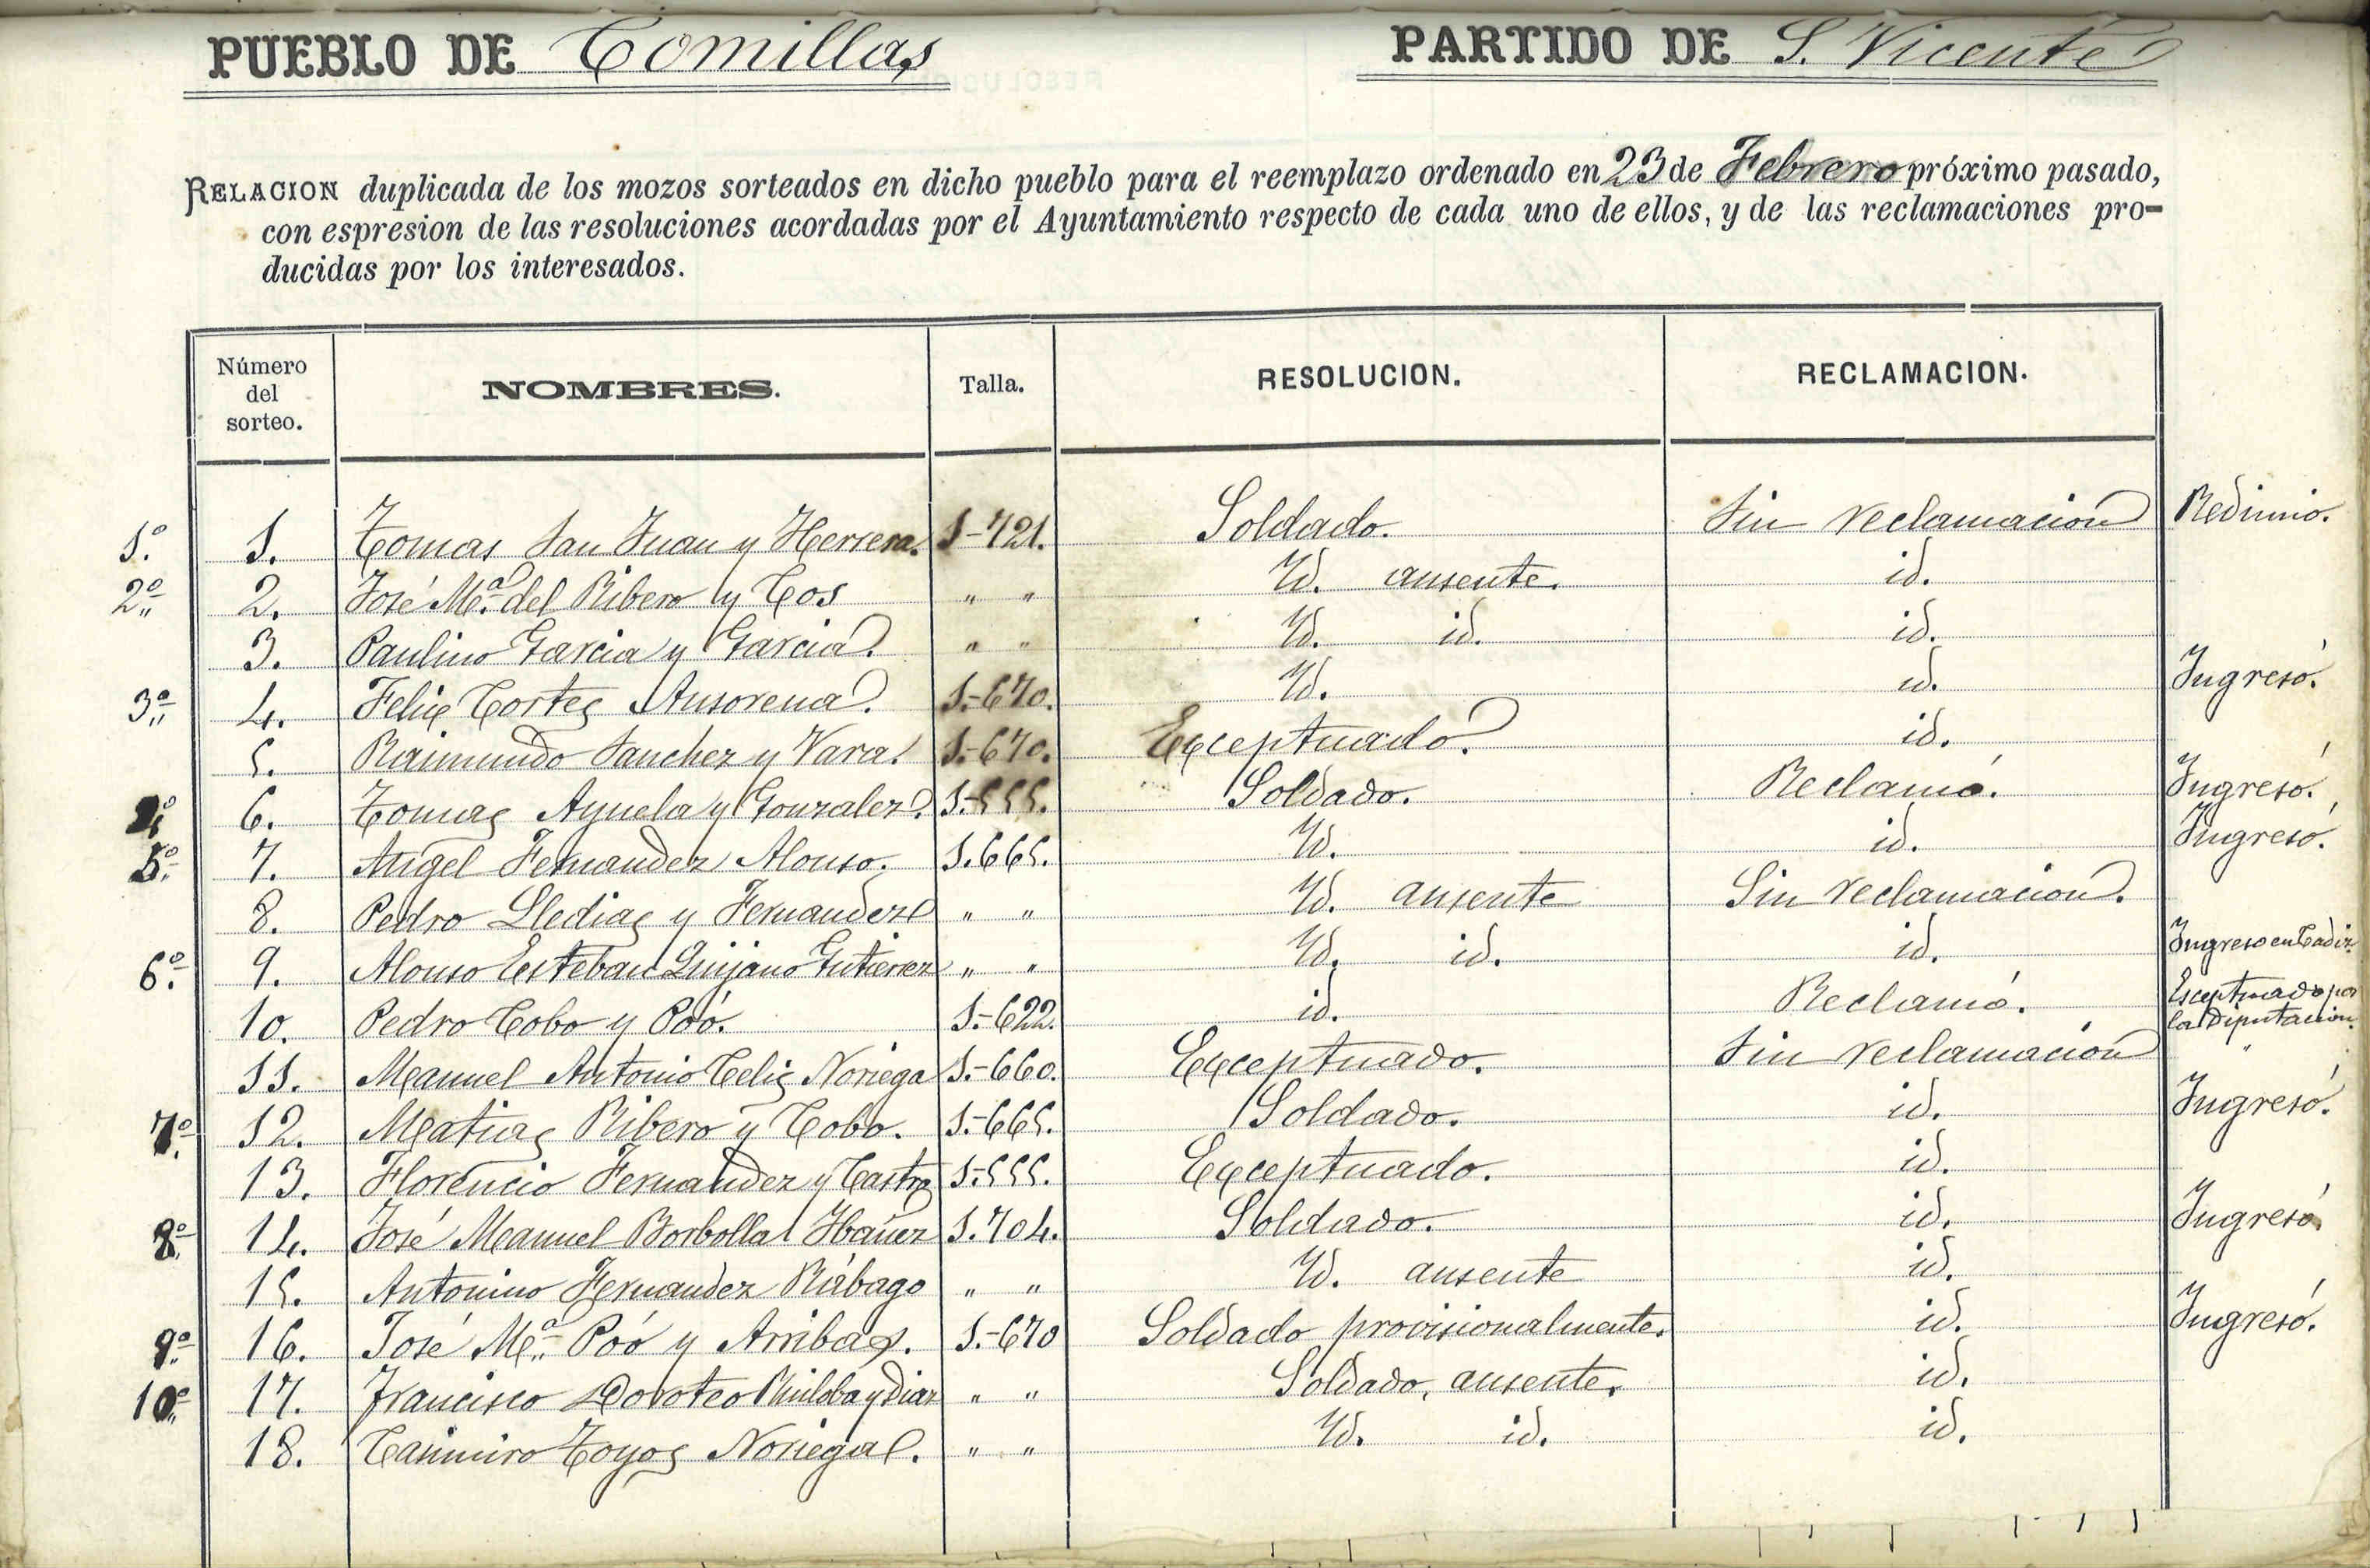 PUEBLO DE Comillas PARTIDO DE S. Vicente
RELACION duplicada de los mozos sorteados en dicho pueblo para el reemplazo ordenado en 23 de Febrero próximo pasado,
con espresion de las resoluciones acordadas por el Ayuntamiento respecto de cada uno de ellos, y de las reclamaciones pro-
ducidas por los interesados.
Número del sorteo. NOMBRES. Talla. RESOLUCION. RECLAMACION.
1.º 1. Tomas San Juan y Herrera. 1-721. Soldado. Sin reclamacion Redimio.
2.º 2. José M.ª del Ribero y Cos " " Id. ausente. id.
3. Paulino Garcia y Garcia. " " Id. id. id.
3.º 4. Felix Cortes Ansorena. 1.-670. Id. id. Ingresó.
5. Raimundo Sanchez y Vara. 1.-670. Exceptuado. id.
6. Tomas Ayuela y Gonzalez. 1.-555. Soldado. Reclamó. Ingresó.
5.º 7. Angel Fernandez Alonso. 1.665. Id. id. Ingresó.
8. Pedro Lledias y Fernandez " " Id. ausente Sin reclamacion.
6.º 9. Alonso Esteban Quijano Gutierrez " " Id. id. id. Ingreso en Cadiz
10. Pedro Cobo y Poó. 1.-622. id. Reclamó. Esceptuado por la Diputacion.
11. Manuel Antonio Celis Noriega 1.-660. Exceptuado. Sin reclamación "
7.º 12. Matias Ribero y Cobo. 1.-665. Soldado. id. Ingresó.
13. Florencio Fernandez y Castro 1.-555. Exceptuado. id.
8.º 14. José Manuel Borbolla Ibañez 1.704. Soldado. id. Ingresó.
15. Antonino Fernandez Rábago " " Id. ausente id.
9.º 16. José M.ª Poó y Arribas. 1.-670 Soldado provisionalmente. id. Ingresó.
10.º 17. Francisco Doroteo y Diaz " " Soldado, ausente. id.
18. Casimiro Toyos Noriega. " " Id. id. id.